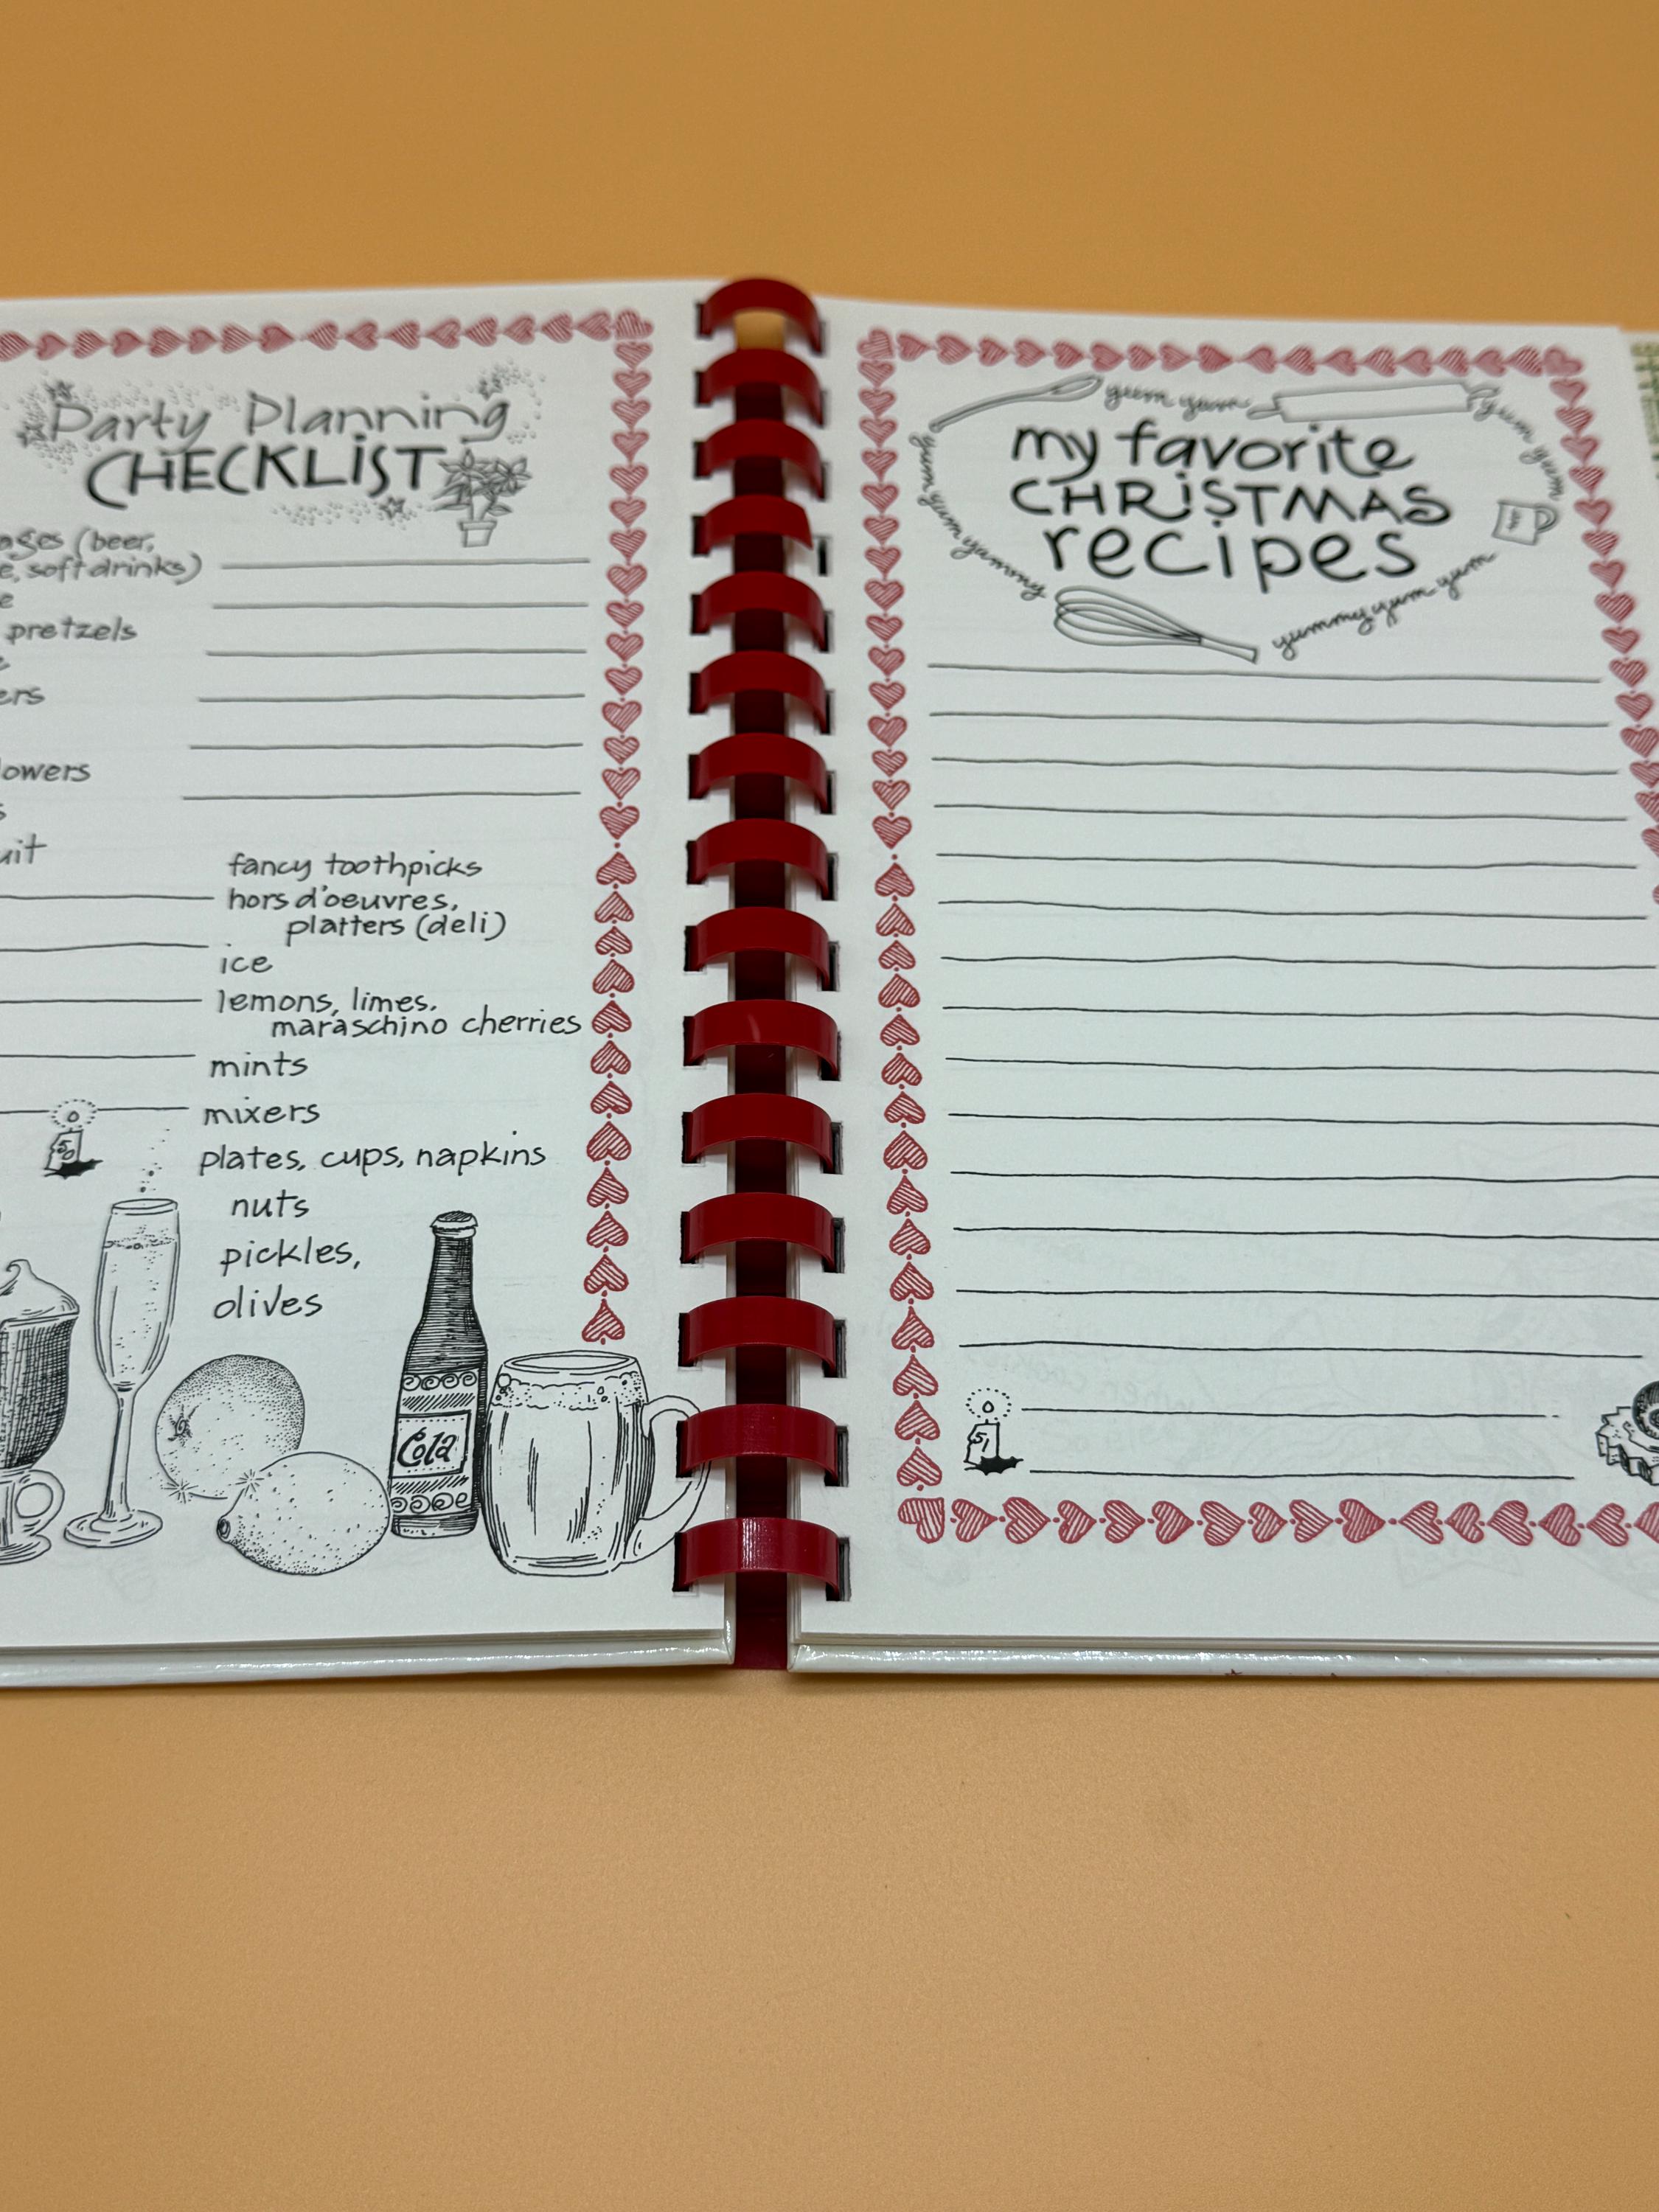 Party Planning
CHECKLIST
(beer,
soft drinks)
pretzels
fancy toothpicks
hors d'oeuvres,
platters (deli)
ice
lemons, limes,
maraschino cherries
mints
mixers
plates, cups, napkins
nuts
pickles,
olives
50
Cola
yum yum
yum yum
yum yum yummy
yummy yum yum
my favorite
CHRISTMAS
recipes
51